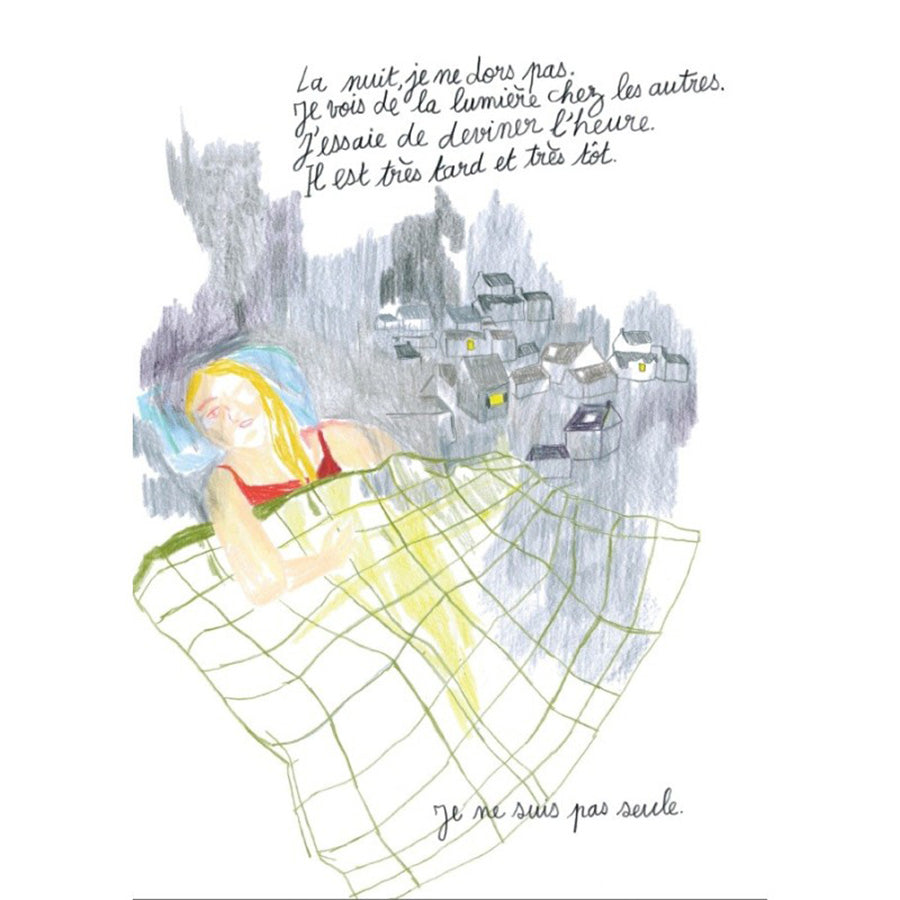 La nuit, je ne dors pas.
Je vois de la lumière chez les autres.
J'essaie de deviner l'heure.
Il est très tard et très tôt.
Je ne suis pas seule.